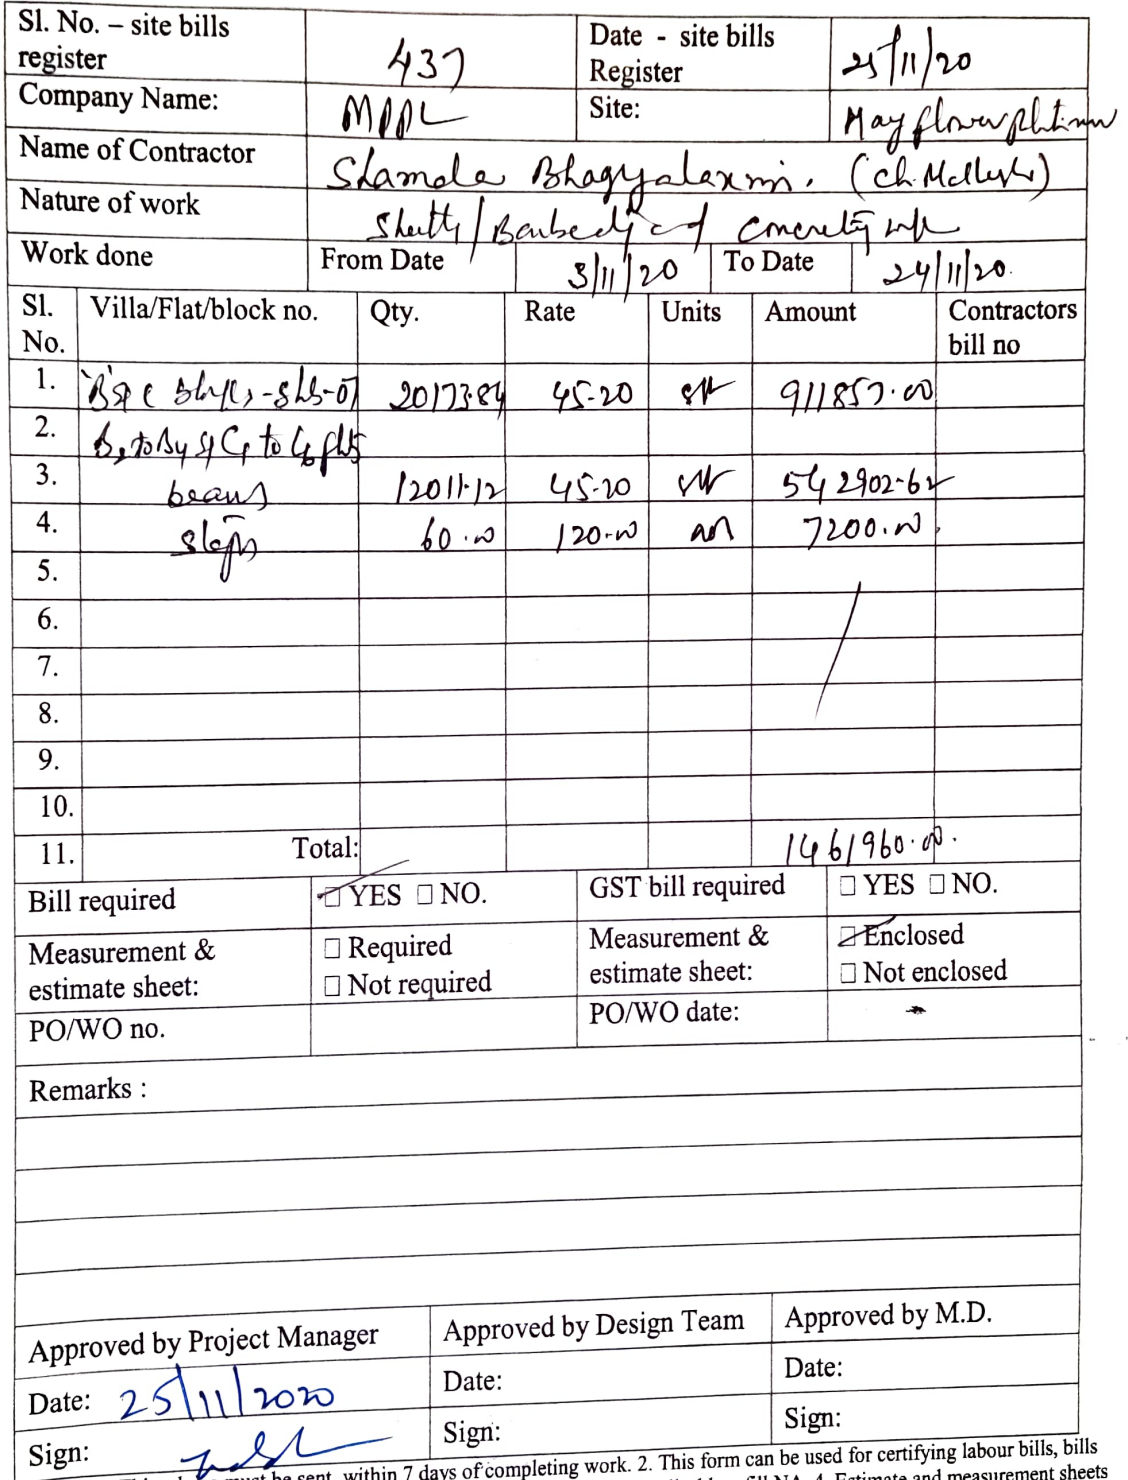 Sl. No. – site bills register 437 Date - site bills Register 25/11/20
Company Name: MPPL Site: Mayflower platinum
Name of Contractor Shamala Bhagyalaxmi. (Ch. Mallesh)
Nature of work
Work done From Date 3/11/20 To Date 24/11/20.
Sl. No. Villa/Flat/block no. Qty. Rate Units Amount Contractors bill no
1. 20173.84 45-20 sft 911857.00
2.
3. beams 12011.12 45-20 sft 542902-62
4. steps 60.00 120.00 7200.00
5.
6.
7.
8.
9.
10.
11. Total: 1461960.00.
Bill required ☐ YES ☐ NO. GST bill required ☐ YES ☐ NO.
Measurement & estimate sheet: ☐ Required ☐ Not required Measurement & estimate sheet: ☐ Enclosed ☐ Not enclosed
PO/WO no. PO/WO date:
Remarks :
Approved by Project Manager Approved by Design Team Approved by M.D.
Date: 25/11/2020 Date: Date:
Sign: Sign: Sign:
must be sent within 7 days of completing work. 2. This form can be used for certifying labour bills, bills
fill NA. 4. Estimate and measurement sheets